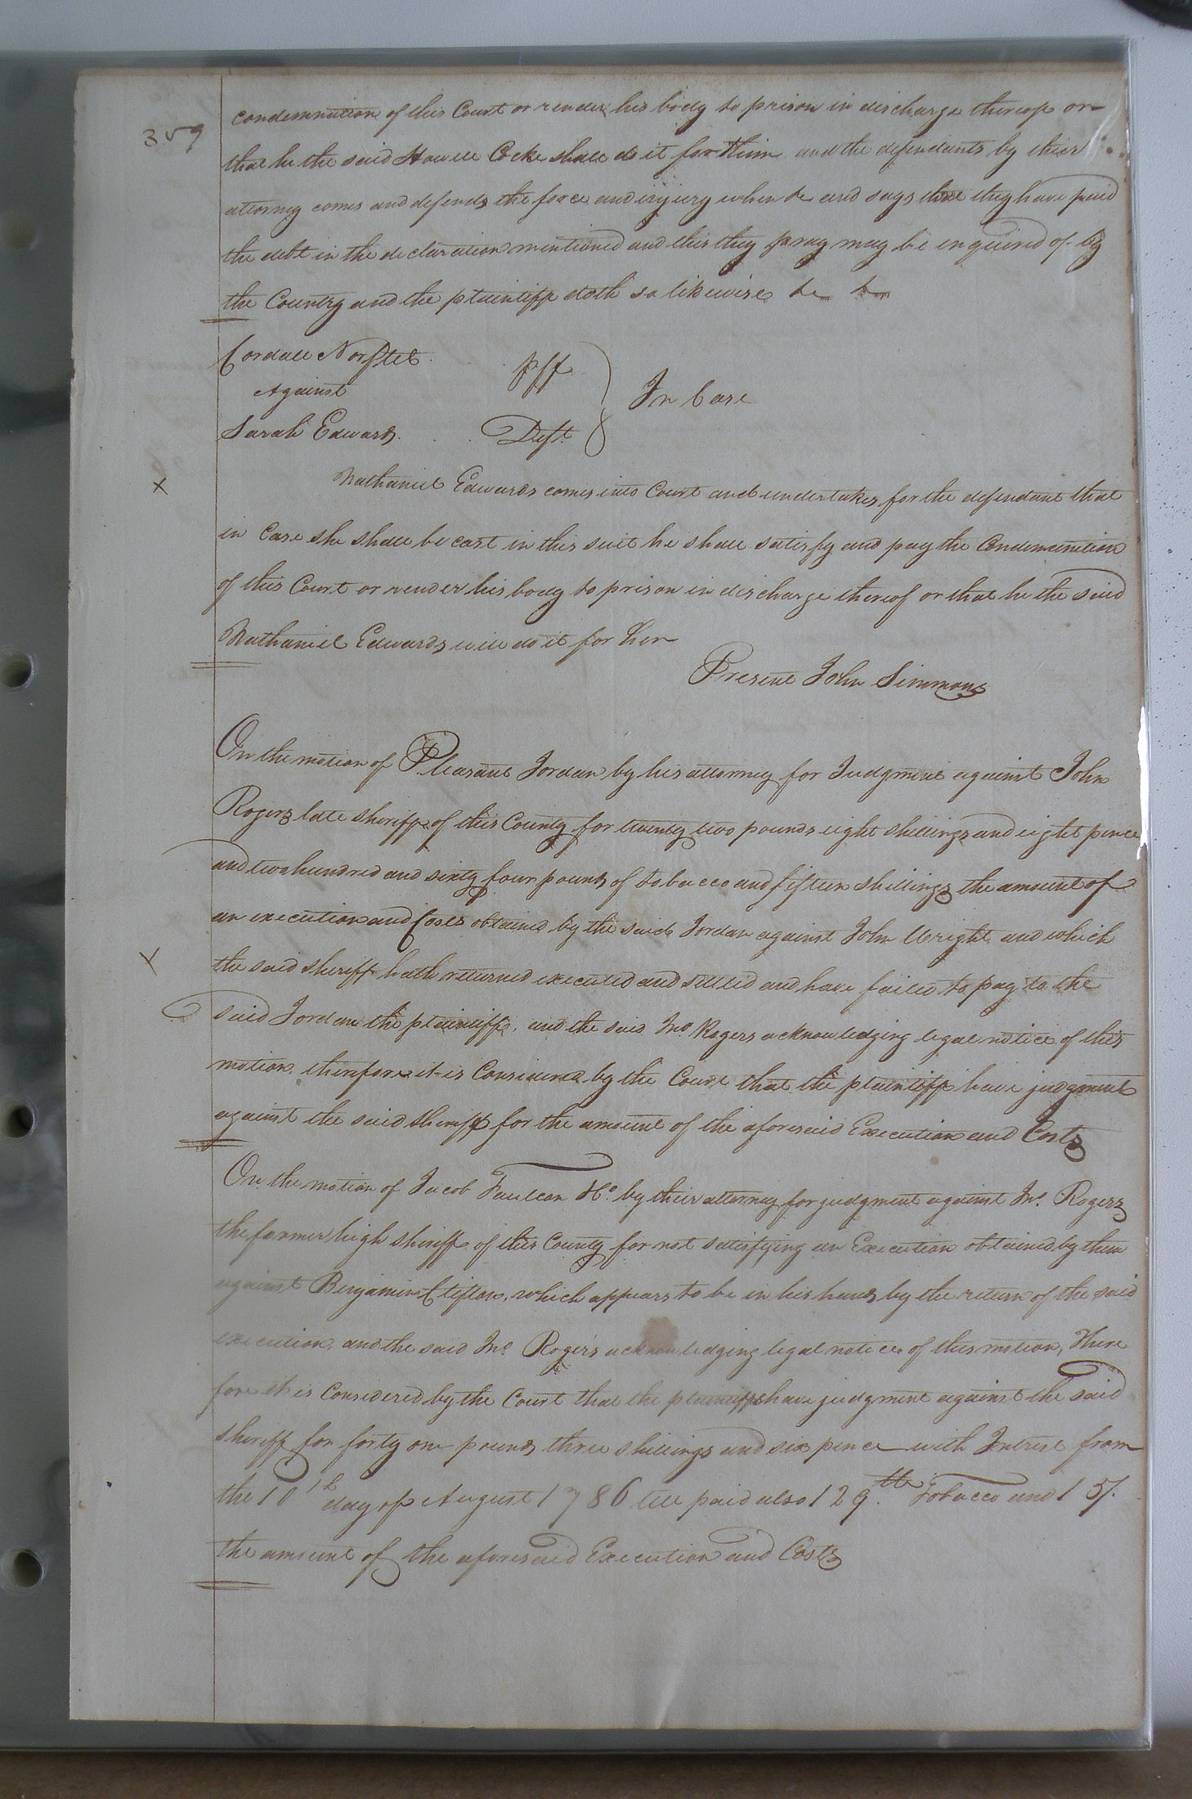 359
condemnation of this Court or render his body to prison in discharge thereof or
that he the said Howell Cocke shall do it for Him and the defendants by their
attorney comes and defends the force and injury when &c and says that they have paid
the debt in the declaration mentioned and this they pray may be inquired of by
the Country and the plaintiff doth so likewise &c &c
Cordall Norfleet Plff
Against
In Case
Sarah Edwards Deft
Nathaniel Edwards comes into Court and undertakes for the defendant that
x
in Case she shall be cast in this suit he shall satisfy and pay the Condemnation
of this Court or render his body to prison in discharge thereof or that he the said
Nathaniel Edwards will do it for her
Present John Simmons
On the motion of Pleasant Jordan by his attorney for Judgment against John
Rogers late sheriff of this County for twenty two pounds eight shillings and eight pence
and two hundred and sixty four pounds of tobacco and fifteen shillings the amount of
an execution and Costs obtained by the said Jordan against John Wright and which
the said sheriff hath returned executed and settled and have failed to pay to the
said Jordan the plaintiff, and the said Jno Rogers acknowledging legal notice of this
motion, therefore it is Considered by the Court that the plaintiff have judgment
against the said sheriff for the amount of the aforesaid Execution and Costs
On the motion of Jacob Faulcon &Co. by their attorney for judgment against Jno. Rogers
the former high sheriff of this County for not satisfying an Execution obtained by them
against Benjamin Clifton, which appears to be in his hands by the return of the said
execution, and the said Jno Rogers acknowledging legal notice of this motion, There
fore it is Considered by the Court that the plaintiffs have judgment against the said
sheriff for forty one pounds three shillings and six pence with Interest from
the 10th day of August 1786 till paid also 129 lb Tobacco and 15/.
the amount of the aforesaid Execution and Costs